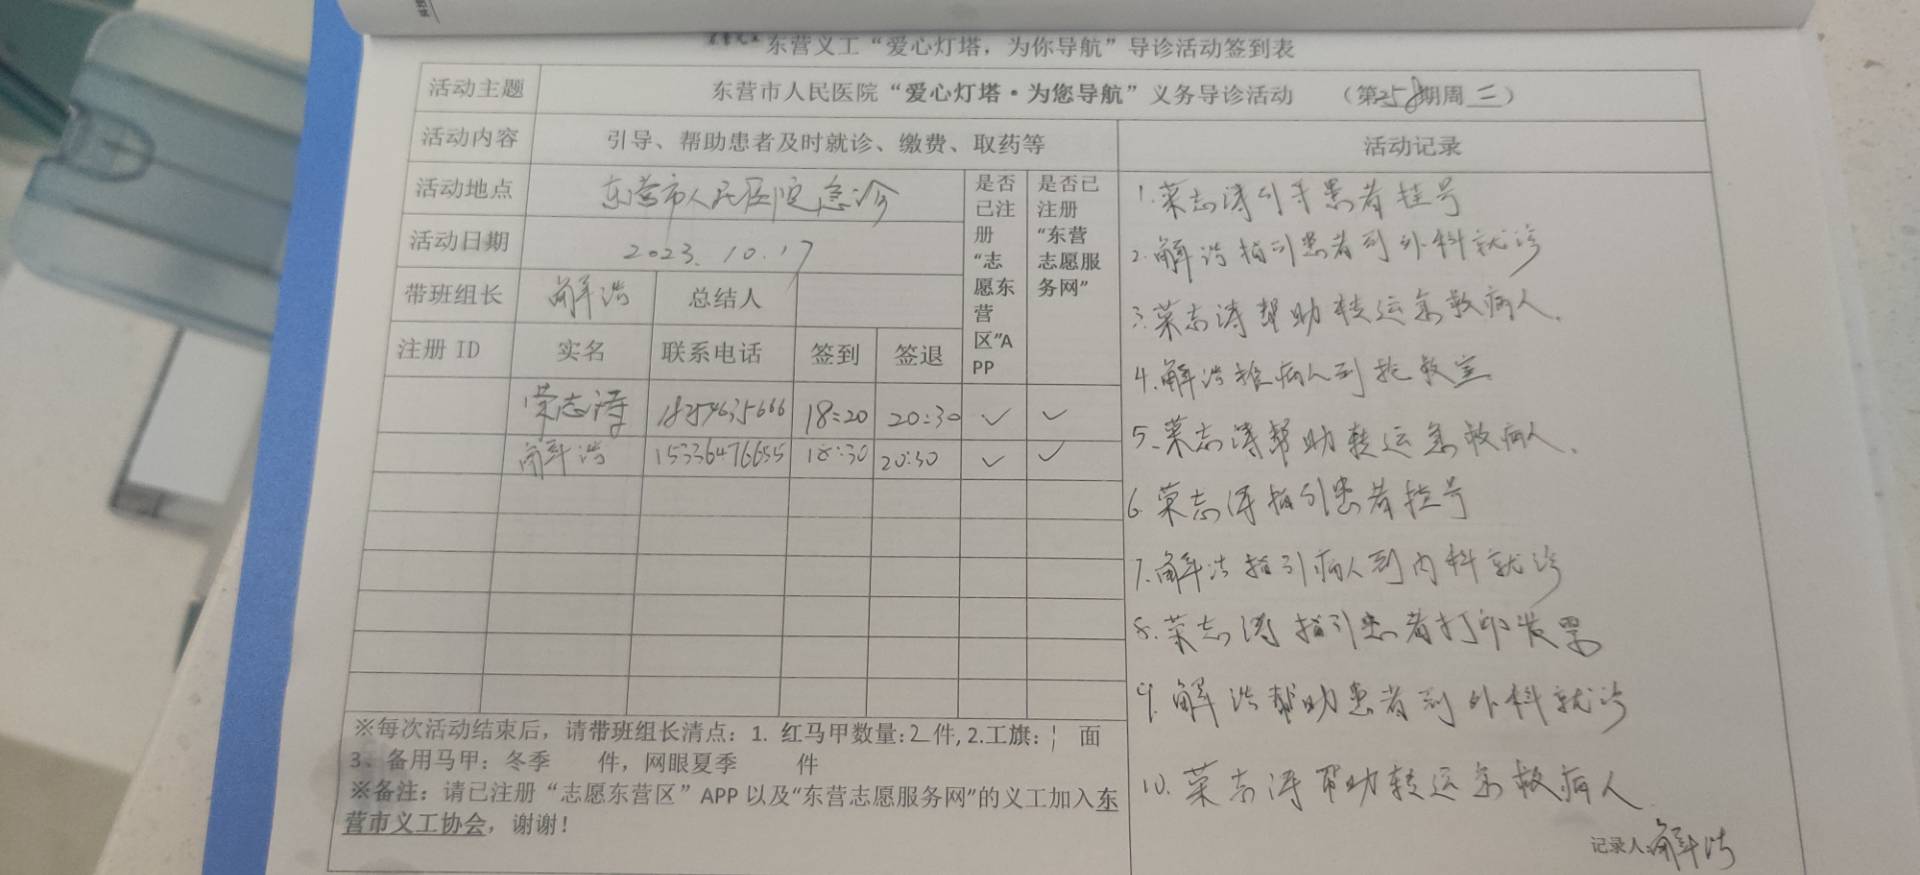 东营义工“爱心灯塔，为你导航”导诊活动签到表
活动主题 东营市人民医院“爱心灯塔·为您导航”义务导诊活动 （第258期周三）
活动内容 引导、帮助患者及时就诊、缴费、取药等 活动记录
活动地点 东营市人民医院急诊
活动日期 2023.10.17
带班组长 解浩 总结人
是否已注册“志愿东营区”APP
是否已注册“东营志愿服务网”
注册 ID 实名 联系电话 签到 签退
荣志涛 18:20 20:30 ✓ ✓
解浩 15336476655 18:30 20:30 ✓ ✓
1.荣志涛引导患者挂号
2.解浩指引患者到外科就诊
3.荣志涛帮助转运急救病人.
4.解浩推病人到抢救室
5.荣志涛帮助转运急救病人.
6.荣志涛指引患者挂号
7.解浩指引病人到内科就诊
8.荣志涛指引患者打印发票
9.解浩帮助患者到外科就诊
10.荣志涛帮助转运急救病人.
记录人:解浩
※每次活动结束后，请带班组长清点：1. 红马甲数量:2件,2.工旗：1 面
3、备用马甲：冬季 件，网眼夏季 件
※备注：请已注册“志愿东营区”APP 以及“东营志愿服务网”的义工加入东
营市义工协会，谢谢！